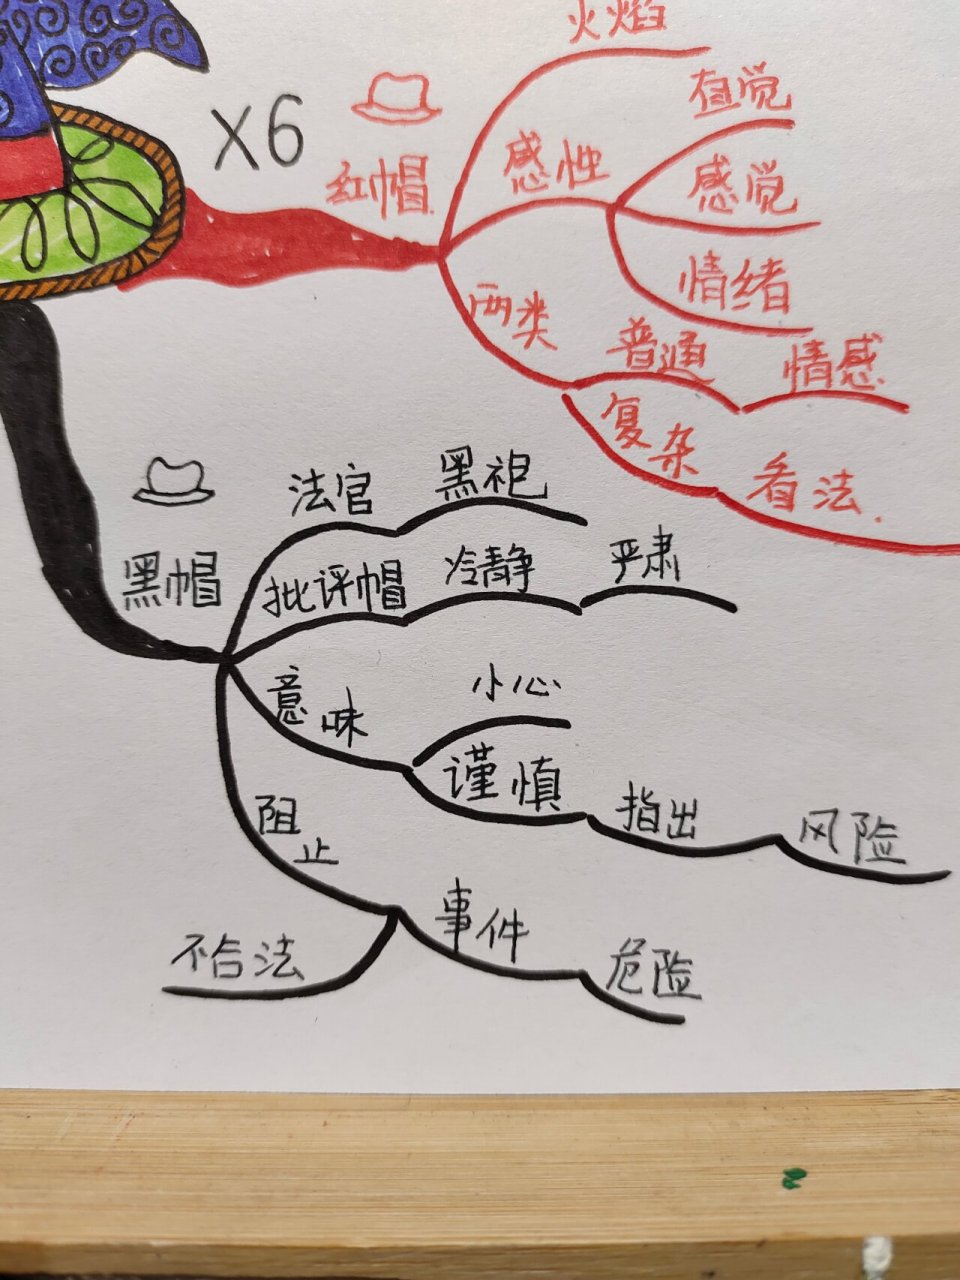 X6
红帽
火焰
感性
直觉
感觉
情绪
两类
普通
情感
复杂
看法.
黑帽
法官
黑袍
批评帽
冷静
严肃
意味
小心
谨慎
指出
风险
阻止
事件
危险
不合法